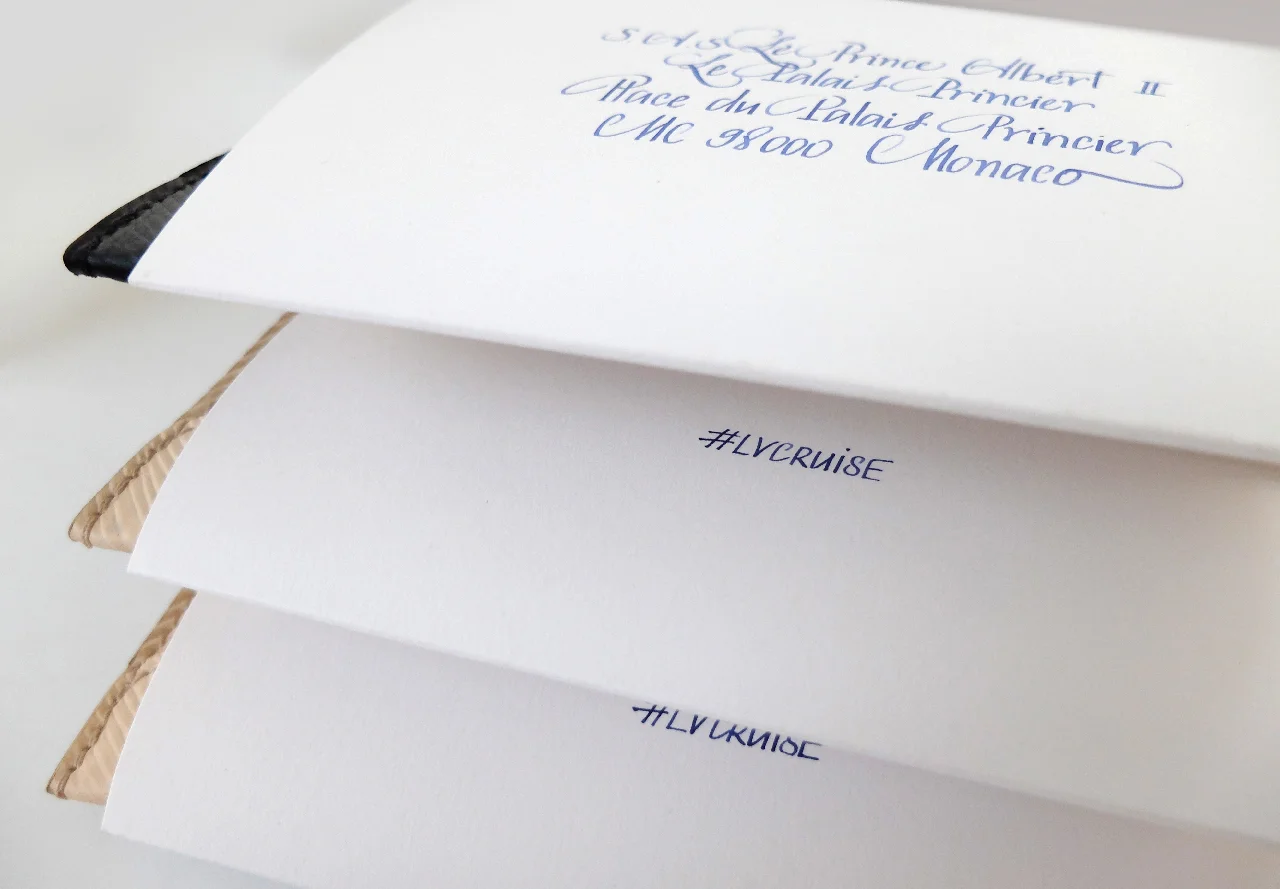 S.A.S Le Prince Albert II
Le Palais Princier
Place du Palais Princier
MC 98000 Monaco
#LVCRUiSE
#LVCRUISE